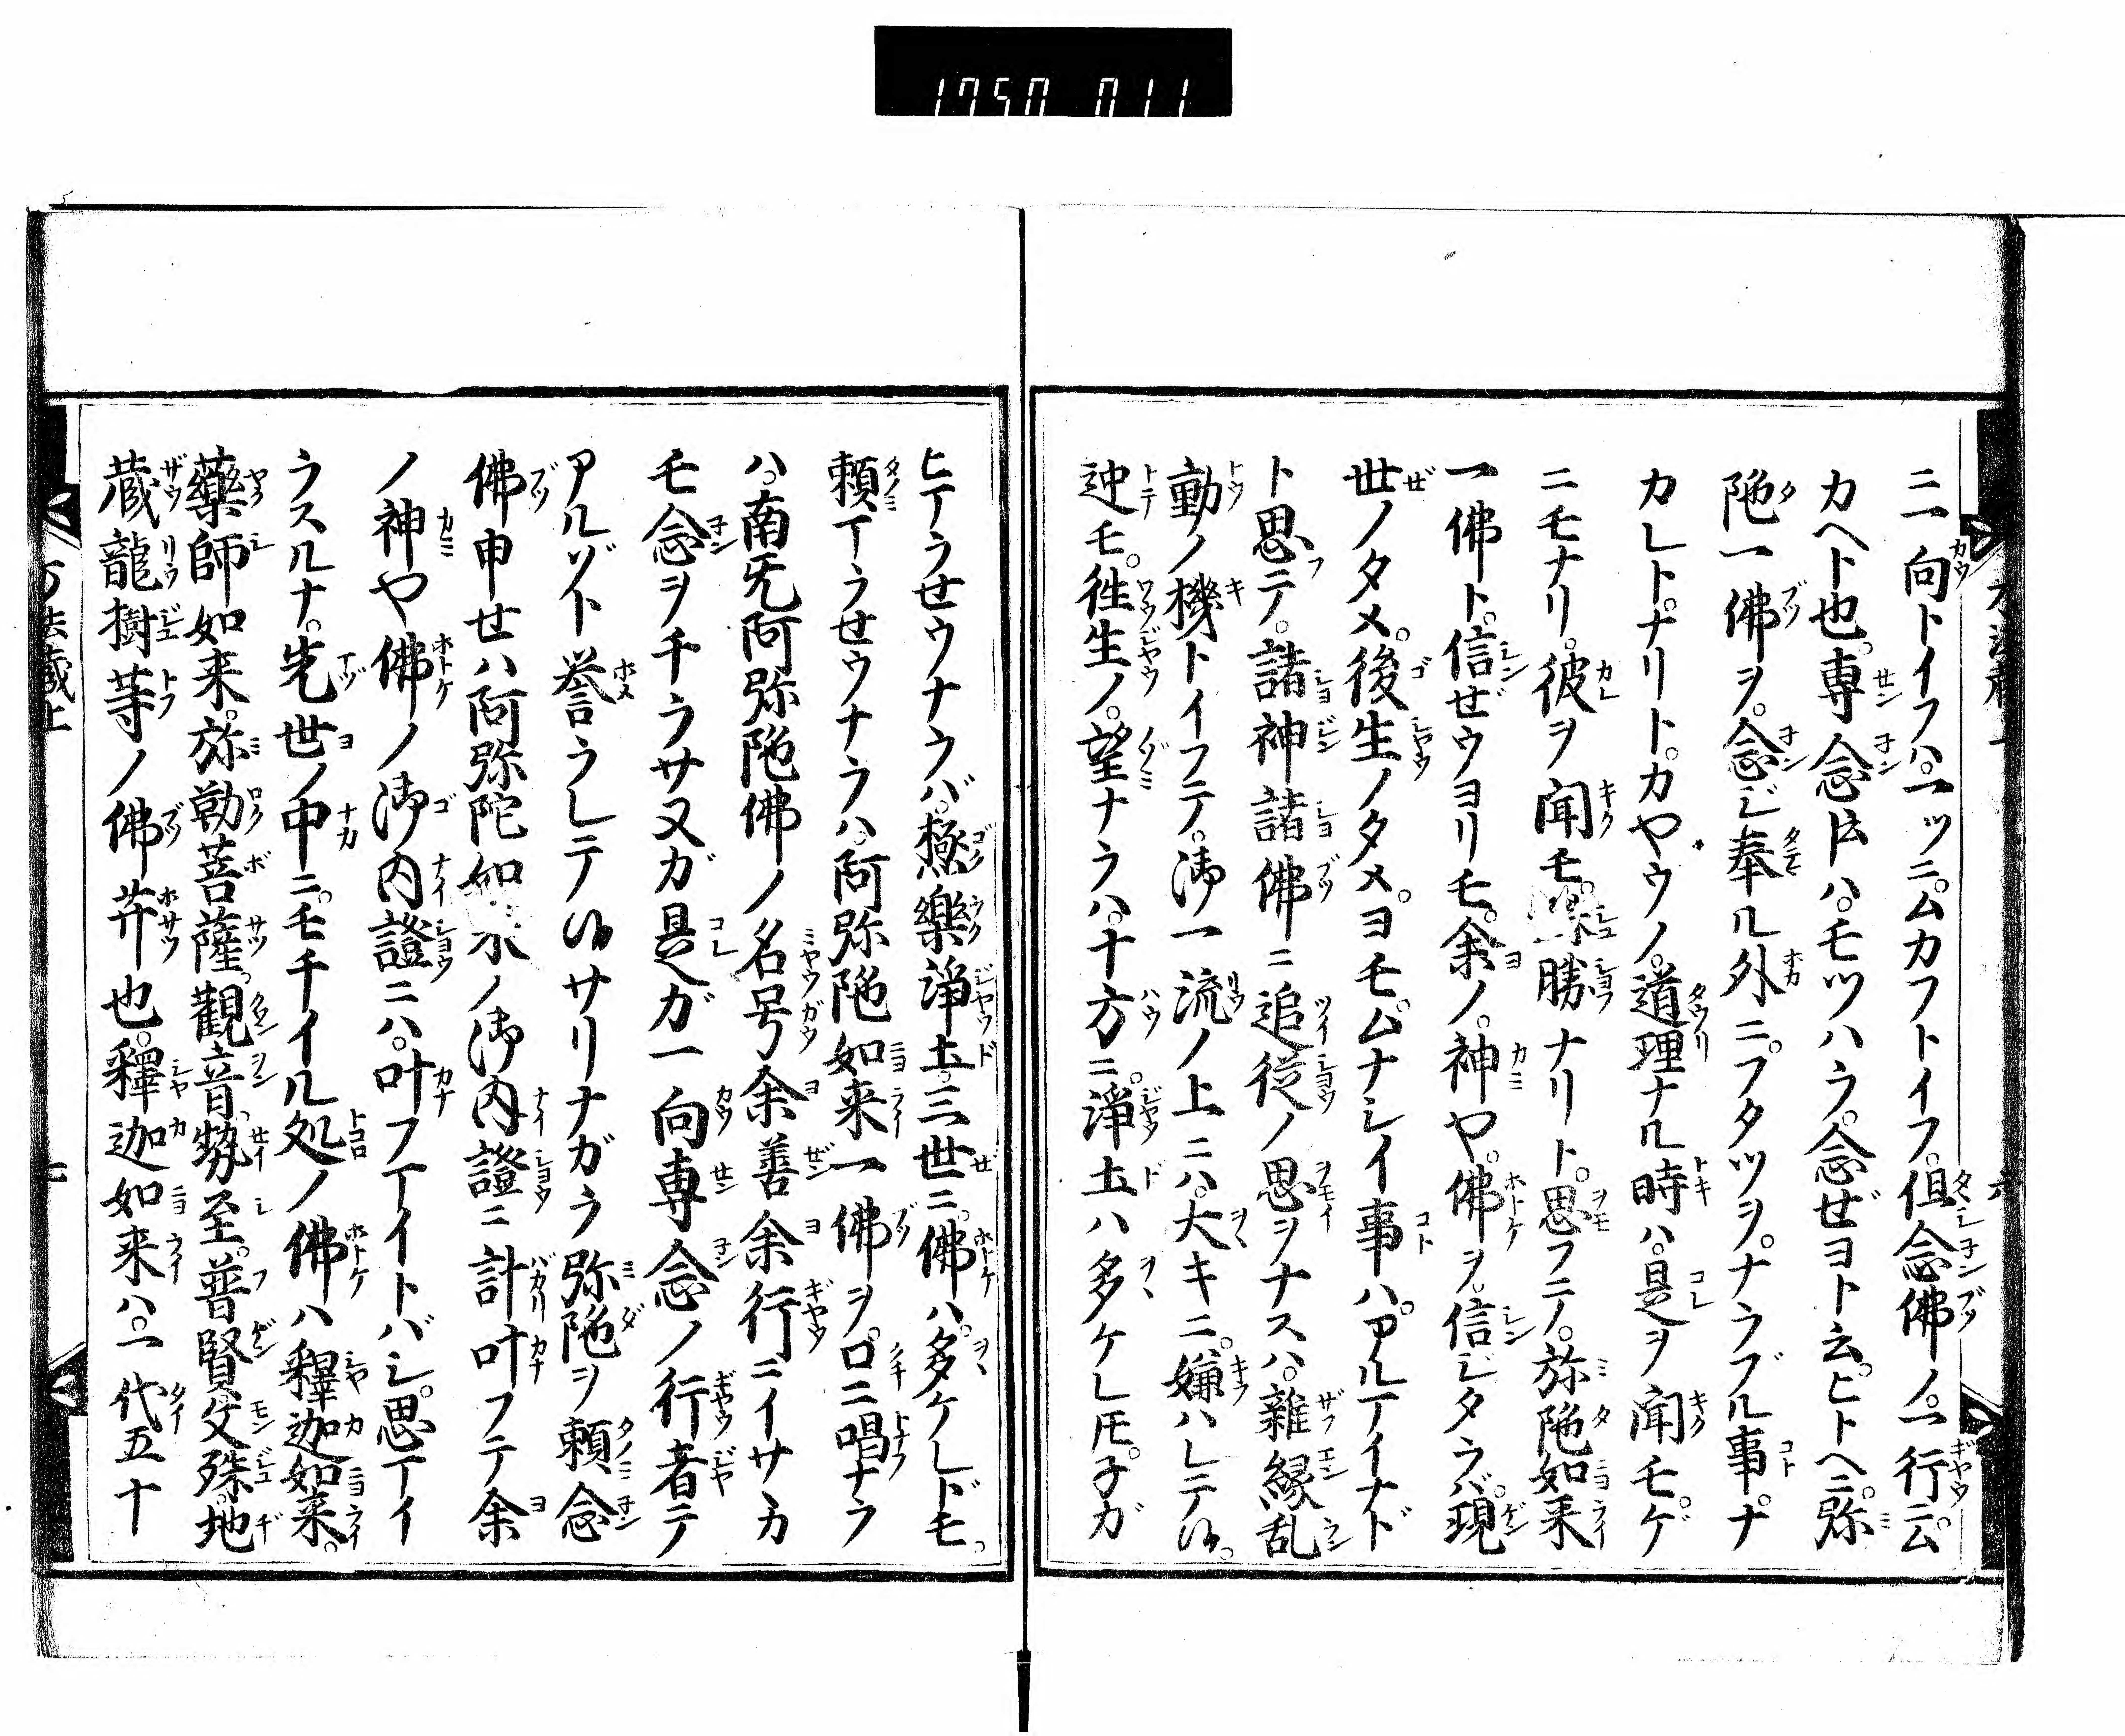 1750 011
ニ一向トイフハ。一ツニ。ムカフトイフ。但念佛ノ。一行ニ。ム
カヘト也。専念トハ。モツハラ。念ぜヨト云。ヒトヘニ。弥
陁一佛ヲ。念ジ奉ル外ニ。フタツヲ。ナラブル事。ナ
カレト。ナリト。カヤウノ。道理ナル時ハ。是ヲ聞モ。ゲ
ニモナリ。彼ヲ聞モ。殊勝ナリト。思フニノ。弥陁如来
一佛ト。信ぜウヨリモ。余ノ。神や。佛ヲ。信ジタラバ。現
世ノタメ。後生ノタメ。ヨモ。ムナシイ事ハ。アルマイナド
ト思テ。諸神諸佛ニ追従ノ思ヲナスハ。雑縁乱
動ノ機トイフテ。御一流ノ上ニハ。大キニ。嫌ハレテ候。
迚モ。徃生ノ。望ナラハ。十方ニ。淨土ハ多ケレ𪜈。子ガ
ヒマラせウナラバ。極樂淨土。三世ニ。佛ハ。多ケレドモ。
頼マラせウナラハ。阿弥陁如来一佛ヲ。口ニ唱ナラ
ハ。南无阿弥陁佛ノ名号余善余行ニイサヽカ
モ念ヲチラサヌガ是ガ一向専念ノ行者テ
アルゾト誉ラレテ候サリナガラ弥陁ヲ頼念
佛申せハ阿弥陀如来ノ御内證ニ計叶フテ余
ノ神や佛ノ御内證ニハ。叶フマイトバシ。思マイ
ラスルナ。先世ノ中ニ。モチイル処ノ佛ハ釋迦如来。
藥師如来。弥勒菩薩。觀音。勢至。普賢文殊。地
蔵龍樹等ノ佛𦬇也。釋迦如来ハ。一代五十